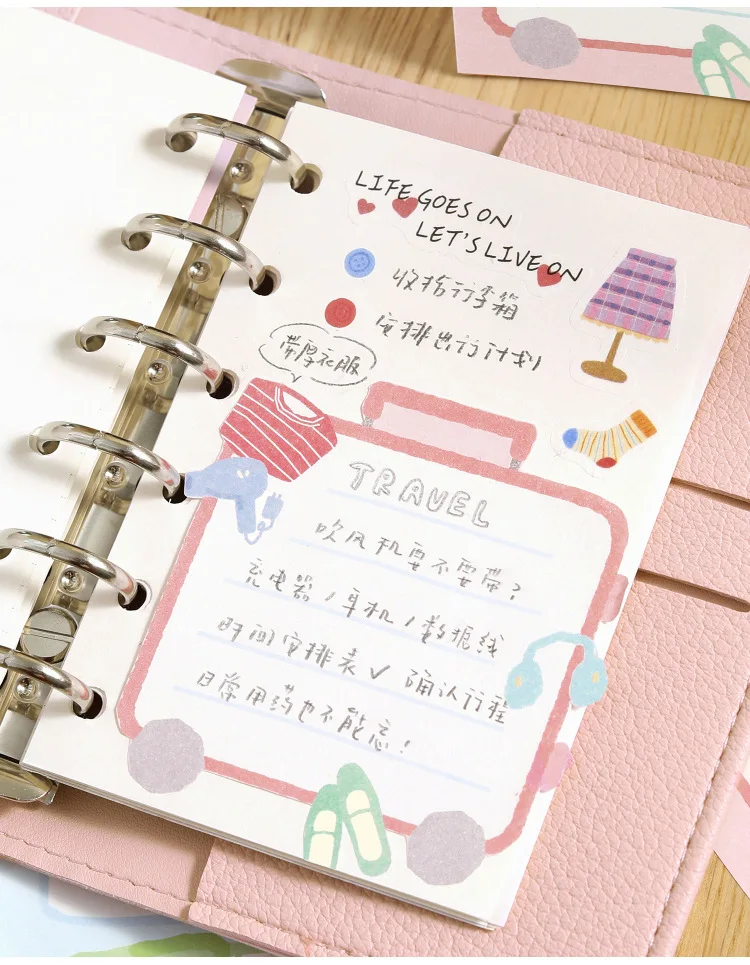 LIFE GOES ON
LET'S LIVE ON
收拾行李箱
安排出行计划
带厚衣服
TRAVEL
吹风机要不要带?
充电器/耳机/数据线
时间安排表✓ 确认行程
日常用药也不能忘!